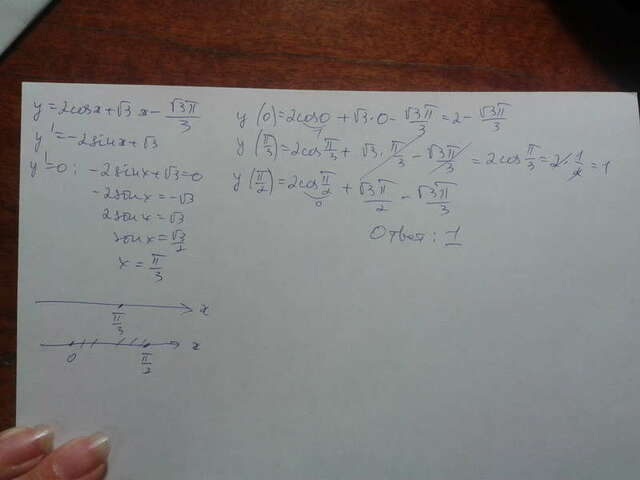 y = 2cosx + √3 x - √3π/3
y' = -2sinx + √3
y' = 0 : -2sinx + √3 = 0
-2sinx = -√3
2sinx = √3
sinx = √3/2
x = π/3
x
π/3
x
0 π/2
y (0) = 2cos0 + √3·0 - √3π/3 = 2 - √3π/3
1
y (π/3) = 2cos π/3 + √3·π/3 - √3π/3 = 2cos π/3 = 2·1/2 = 1
y (π/2) = 2cos π/2 + √3π/2 - √3π/3
0
Ответ: 1